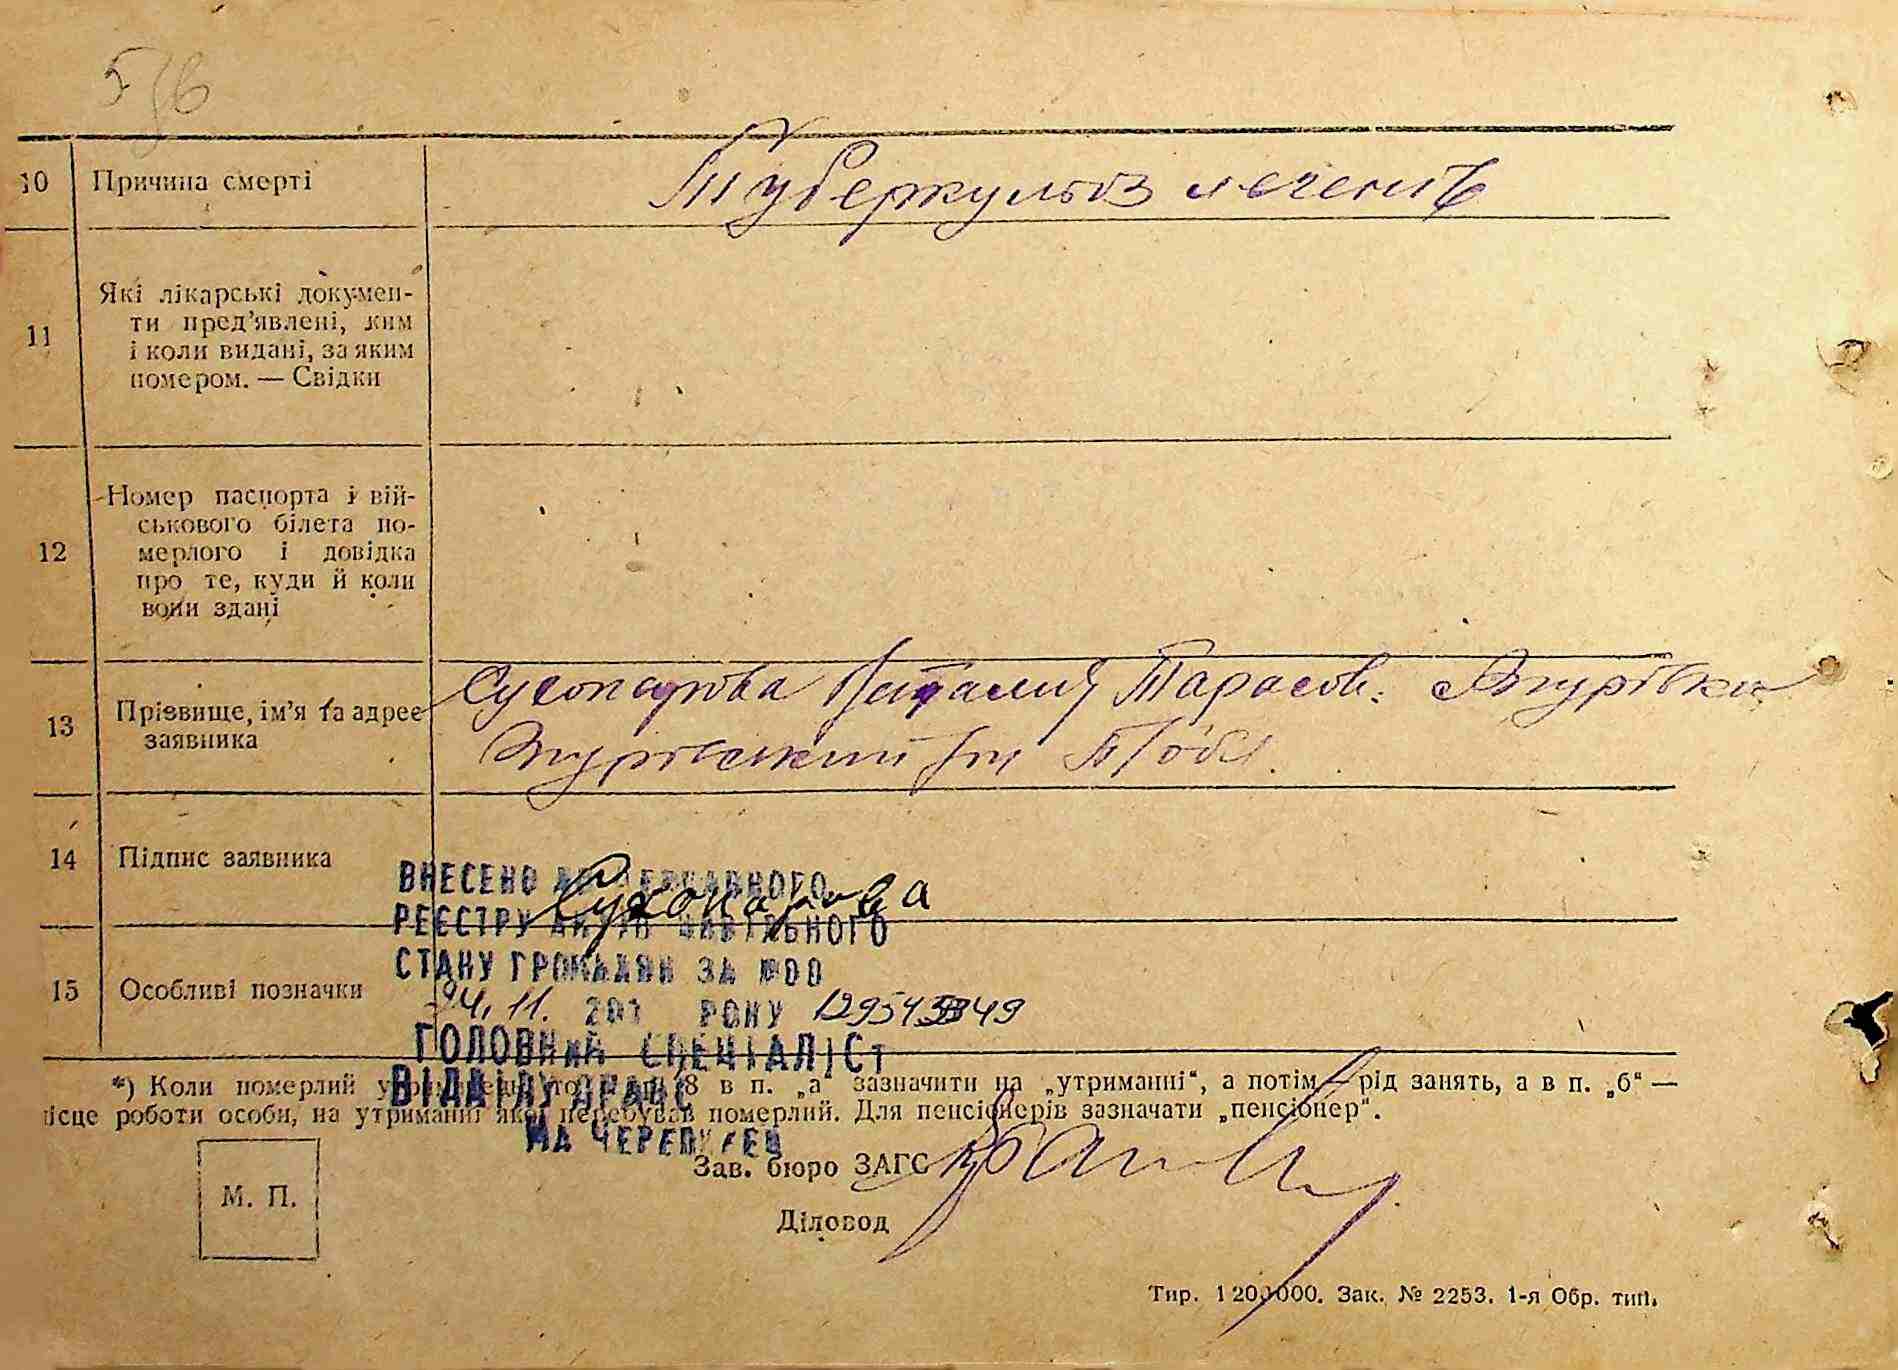 5
10 Причина смерті Туберкульоз легенів
11 Які лікарські докумен-
ти пред'явлені, ким
і коли видані, за яким
номером. — Свідки
12 Номер паспорта і вій-
ськового білета по-
мерлого і довідка
про те, куди й коли
вони здані
13 Прізвище, ім'я та адрес
заявника
Сухопарова Наталия Тарасов. с Згурівка
Згурівський рн П/обл.
14 Підпис заявника Сухопарова
ВНЕСЕНО ДО ДЕРЖАВНОГО
РЕЄСТРУ АКТІВ ЦИВІЛЬНОГО
СТАНУ ГРОМАДЯН ЗА №00
15 Особливі позначки
24.11. 201 РОКУ
ГОЛОВНИЙ СПЕЦІАЛІСТ
ВІДДІЛУ ДРАЦС
*) Коли померлий 8 в п. „а" зазначити на „утриманні", а потім — рід занять, а в п. „б" —
ісце роботи особи, на утриманні якої перебував померлий. Для пенсіонерів зазначати „пенсіонер".
МА ЧЕРЕПУ ЕЦ
Зав. бюро ЗАГС
М. П.
Діловод
Тир. 1200000. Зак. № 2253. 1-я Обр. тип.